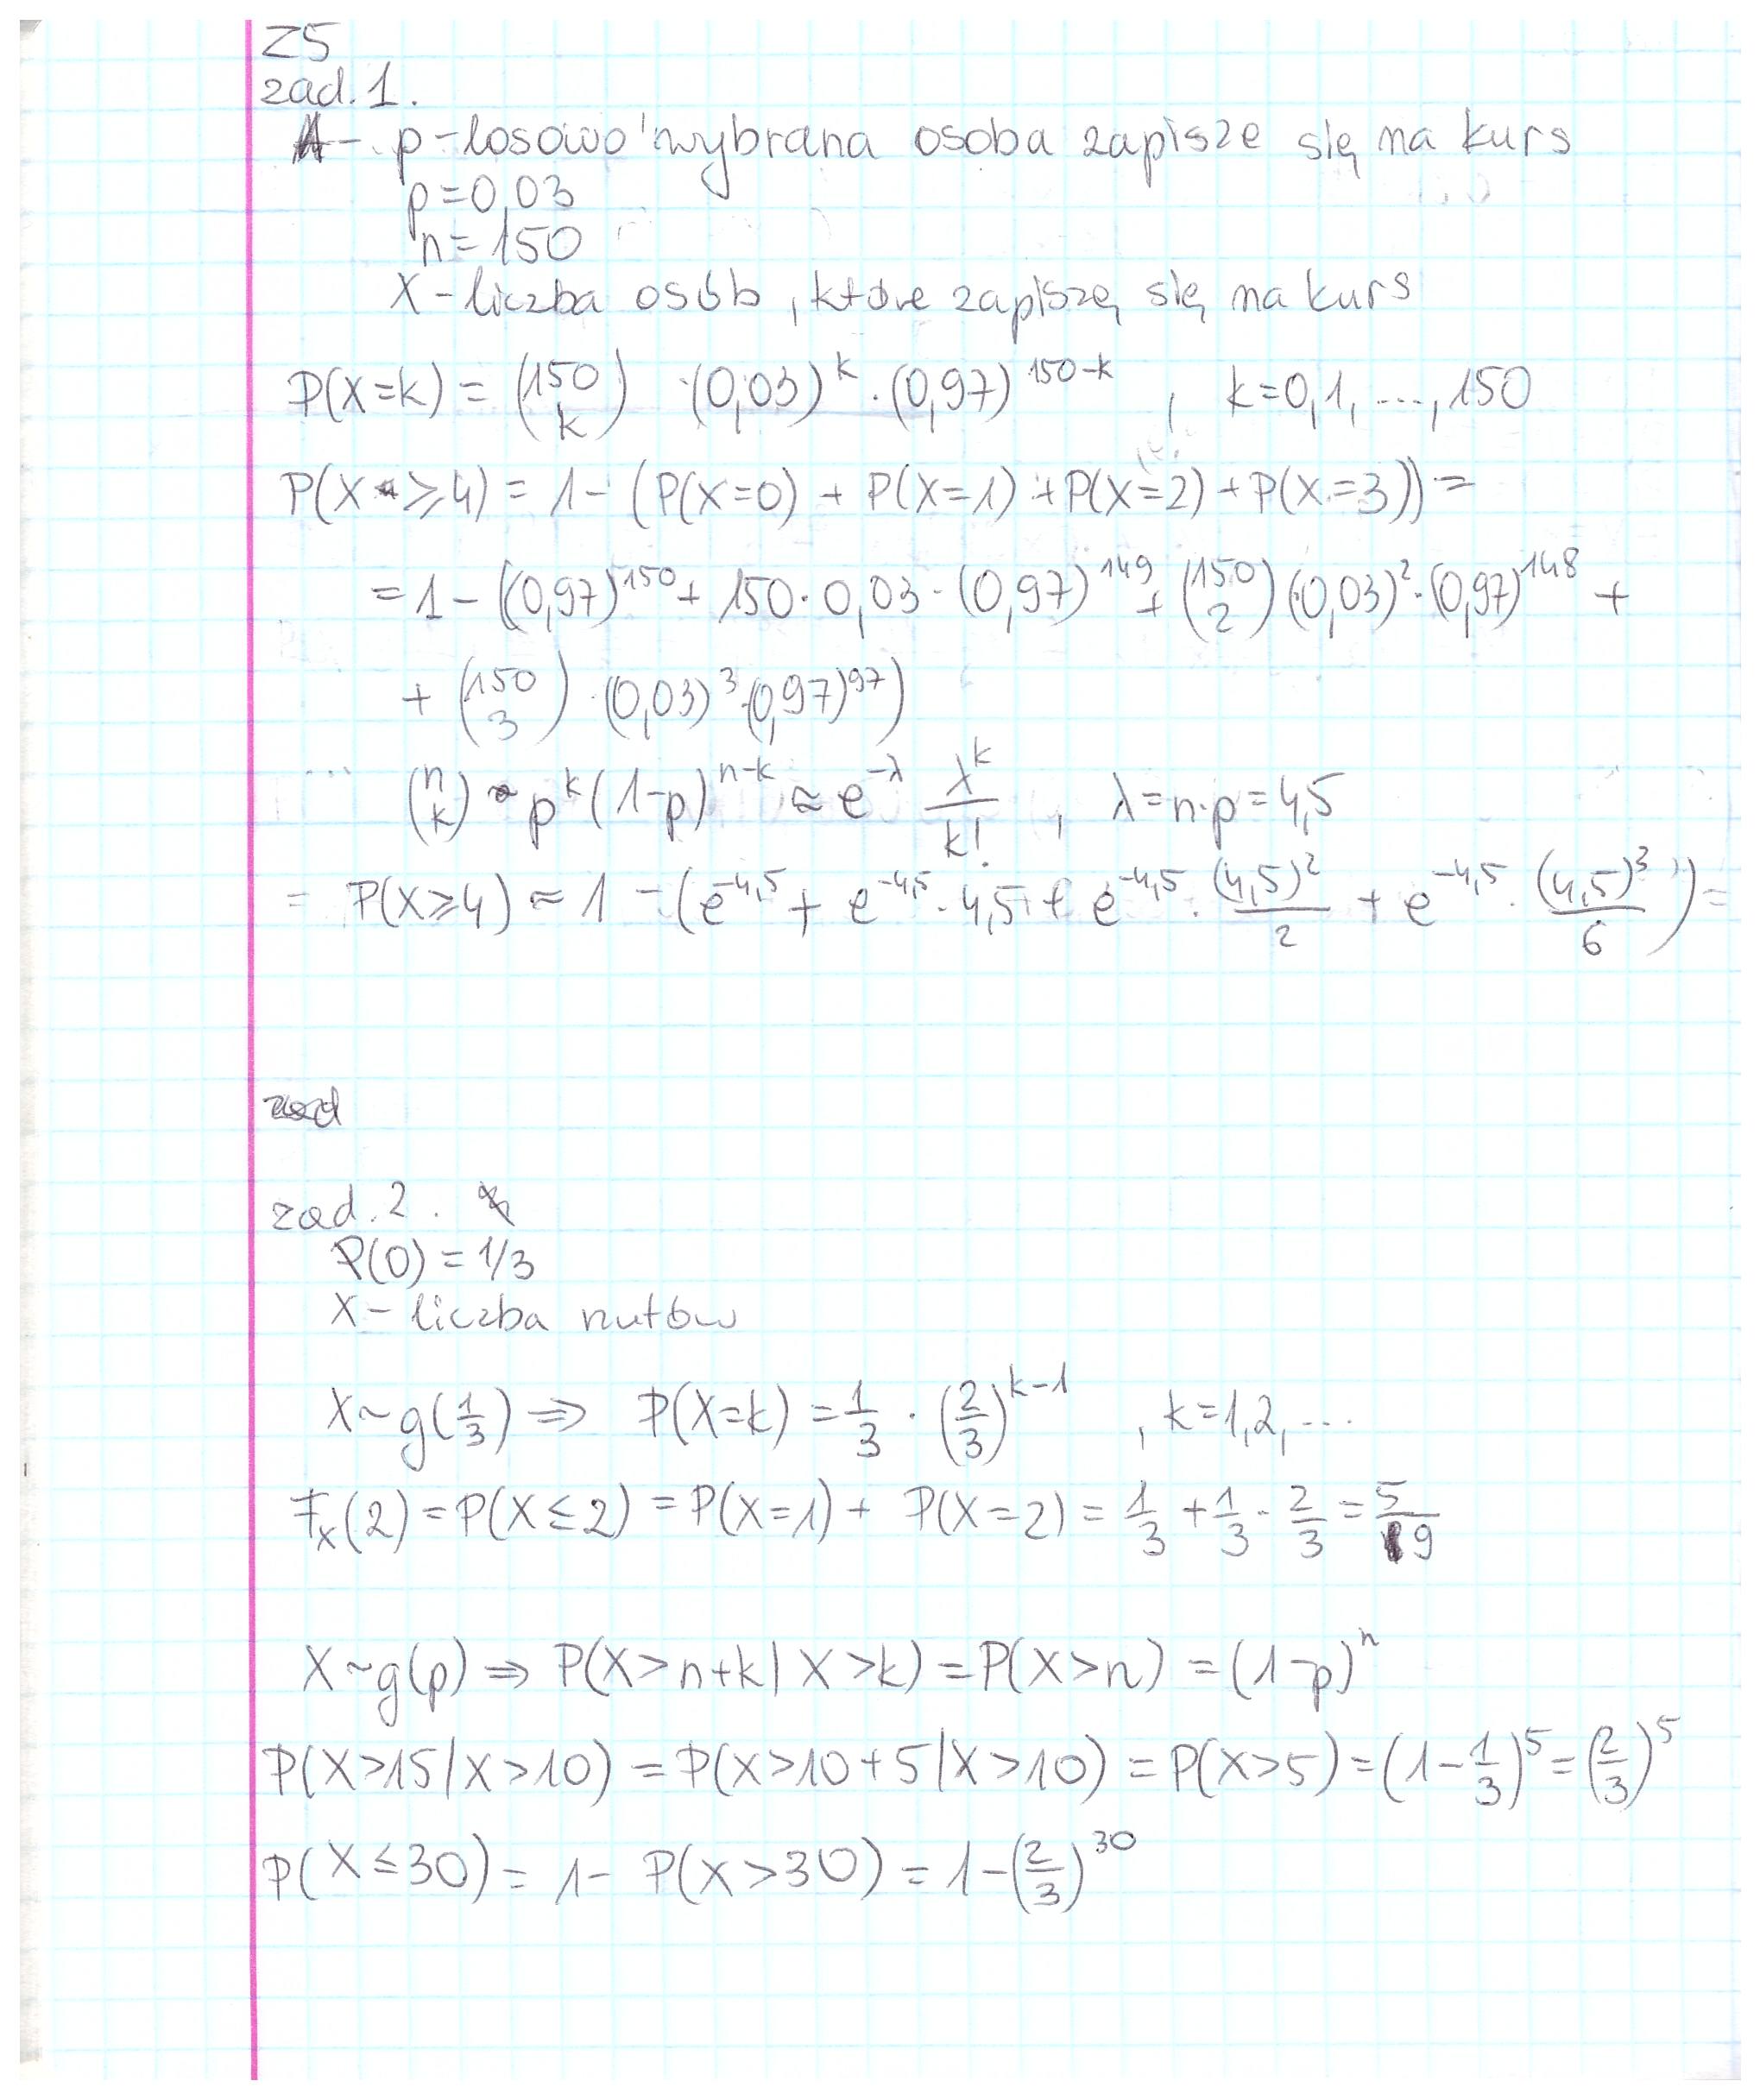 Z5
zad. 1.
p - losowo wybrana osoba zapisze się na kurs
p = 0,03
n = 150
X - liczba osób, które zapiszą się na kurs
P(X=k) = (150 k) · (0,03)^k · (0,97)^150-k , k=0,1,...,150
P(X ≥ 4) = 1 - (P(X=0) + P(X=1) + P(X=2) + P(X=3)) =
= 1 - ((0,97)^150 + 150 · 0,03 · (0,97)^149 + (150 2) · (0,03)^2 · (0,97)^148 +
+ (150 3) · (0,03)^3 · (0,97)^97)
... (n k) · p^k (1-p)^n-k ≈ e^-λ λ^k/k! , λ = n·p = 4,5
= P(X≥4) ≈ 1 - (e^-4,5 + e^-4,5 · 4,5 + e^-4,5 · (4,5)^2/2 + e^-4,5 · (4,5)^3/6) =
zad. 2.
P(O) = 1/3
X - liczba rzutów
X ~ g(1/3) ⇒ P(X=k) = 1/3 · (2/3)^k-1 , k=1,2,...
F_X(2) = P(X ≤ 2) = P(X=1) + P(X=2) = 1/3 + 1/3 · 2/3 = 5/9
X ~ g(p) ⇒ P(X > n+k | X > k) = P(X > n) = (1-p)^n
P(X>15 | X>10) = P(X>10+5 | X>10) = P(X>5) = (1-1/3)^5 = (2/3)^5
P(X ≤ 30) = 1 - P(X > 30) = 1 - (2/3)^30